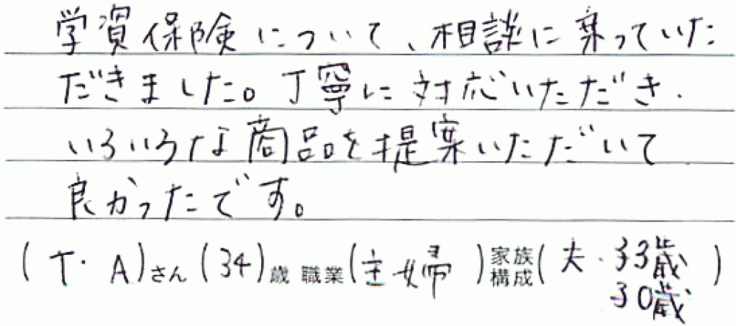 学資保険について、相談に乗っていた
だきました。丁寧に対応いただき、
いろいろな商品を提案いただいて
良かったです。
(T・A)さん(34)歳 職業(主婦)家族構成(夫・33歳)
30歳